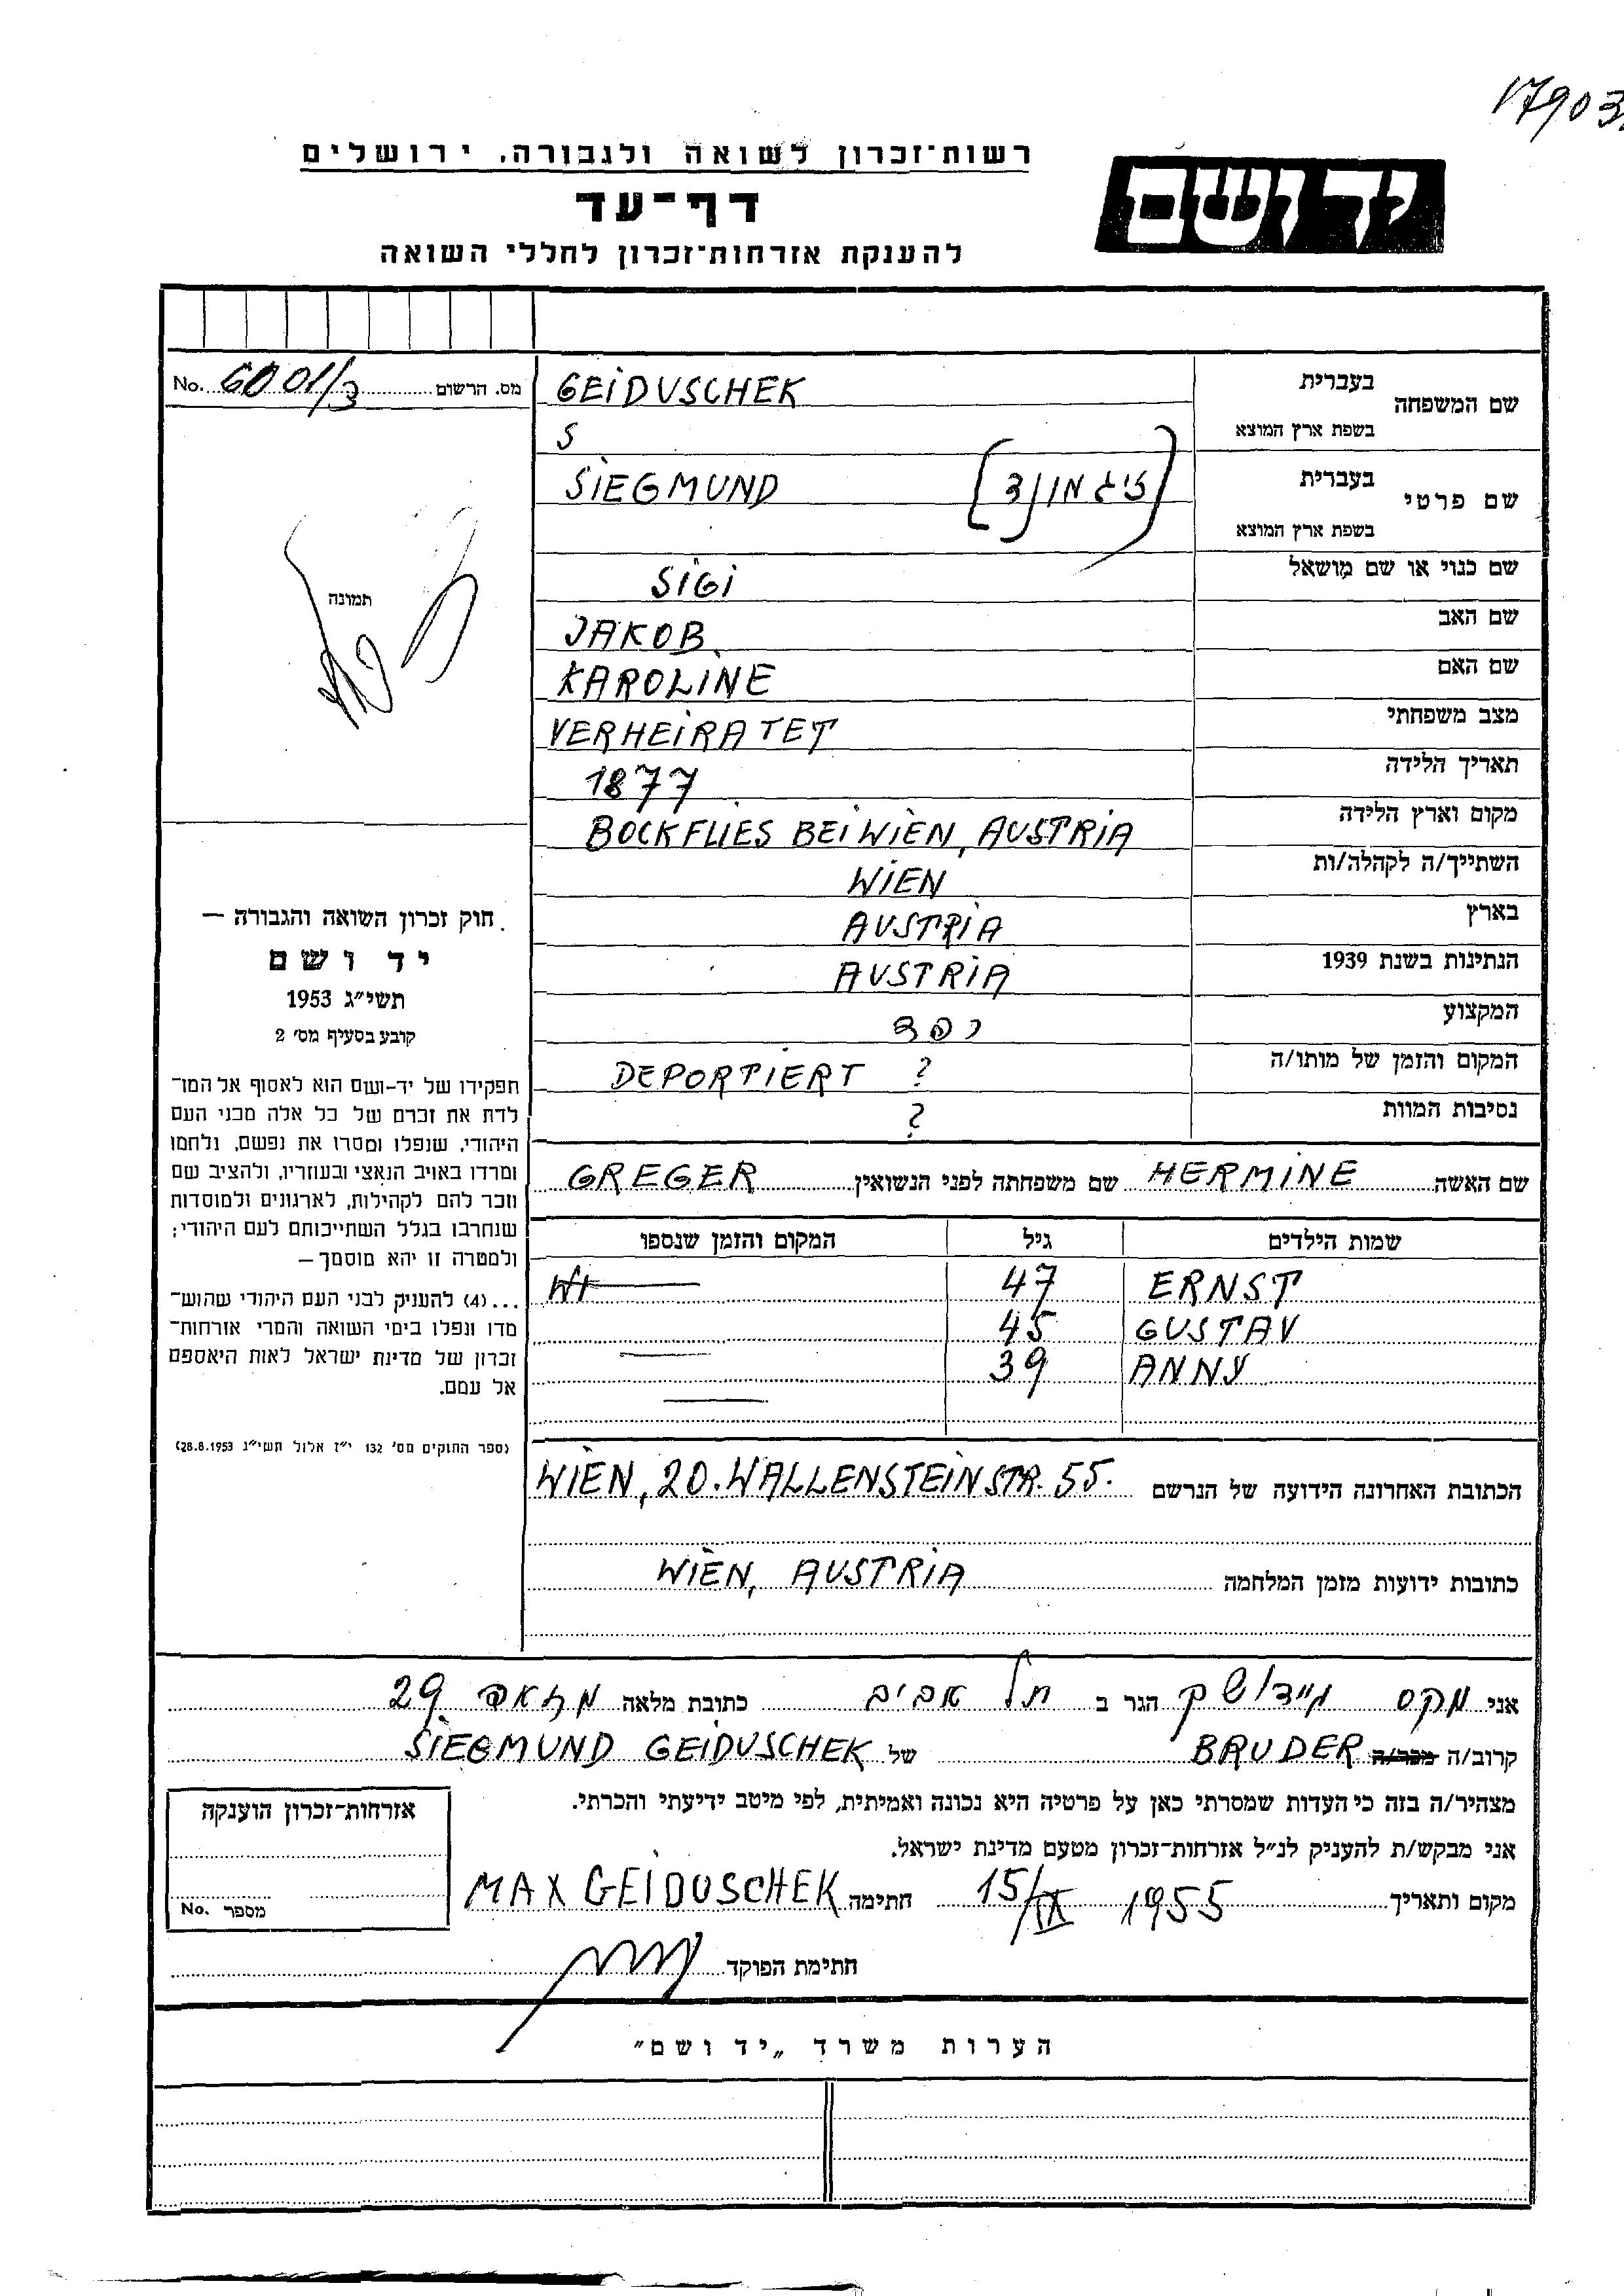 17903
רשות־זכרון לשואה ולגבורה, ירושלים
יד ושם
דף־עד
להענקת אזרחות־זכרון לחללי השואה
מס. הרשום 6001/3 No.
שם המשפחה בעברית GEIDUSCHEK
בשפת ארץ המוצא S
שם פרטי בעברית SIEGMUND [זיגמונד]
בשפת ארץ המוצא
שם כנוי או שם מושאל SIGI
שם האב JAKOB
שם האם KAROLINE
מצב משפחתי VERHEIRATET
תאריך הלידה 1877
מקום וארץ הלידה BOCKFLIES BEI WIEN, AUSTRIA
השתייך/ה לקהלה/ות WIEN
בארץ AUSTRIA
הנתינות בשנת 1939 AUSTRIA
המקצוע
המקום והזמן של מותו/ה DEPORTIERT ?
נסיבות המוות ?
תמונה
חוק זכרון השואה והגבורה —
יד ושם
תשי״ג 1953
קובע בסעיף מס׳ 2
תפקידו של יד-ושם הוא לאסוף אל המו־
לדת את זכרם של כל אלה מבני העם
היהודי, שנפלו ומסרו את נפשם, נלחמו
ומרדו באויב הנאצי ובעוזריו, ולהציב שם
וזכר להם לקהילות, לארגונים ולמוסדות
שנחרבו בגלל השתייכותם לעם היהודי;
ולמטרה זו יהא מוסמך —
...(4) להעניק לבני העם היהודי שהוש־
מדו ונפלו בימי השואה והמרי אזרחות־
זכרון של מדינת ישראל לאות היאספם
אל עמם.
(ספר החוקים מס׳ 132 י״ז אלול תשי״ג 28.8.1953)
שם האשה HERMINE שם משפחתה לפני הנשואין GREGER
שמות הילדים גיל המקום והזמן שנספו
ERNST 47
GUSTAV 45
ANNY 39
הכתובת האחרונה הידועה של הנרשם WIEN, 20. WALLENSTEINSTR. 55.
כתובות ידועות מזמן המלחמה WIEN, AUSTRIA
אני מקס גיידושק הגר ב תל אביב כתובת מלאה מזאה 29
קרוב/ה מכר/ה BRUDER של SIEGMUND GEIDUSCHEK
מצהיר/ה בזה כי העדות שמסרתי כאן על פרטיה היא נכונה ואמיתית, לפי מיטב ידיעתי והכרתי.
אני מבקש/ת להעניק לנ״ל אזרחות־זכרון מטעם מדינת ישראל.
מקום ותאריך 15/IX 1955 חתימה MAX GEIDUSCHEK
חתימת הפוקד
אזרחות־זכרון הוענקה
מספר No.
הערות משרד „יד ושם״